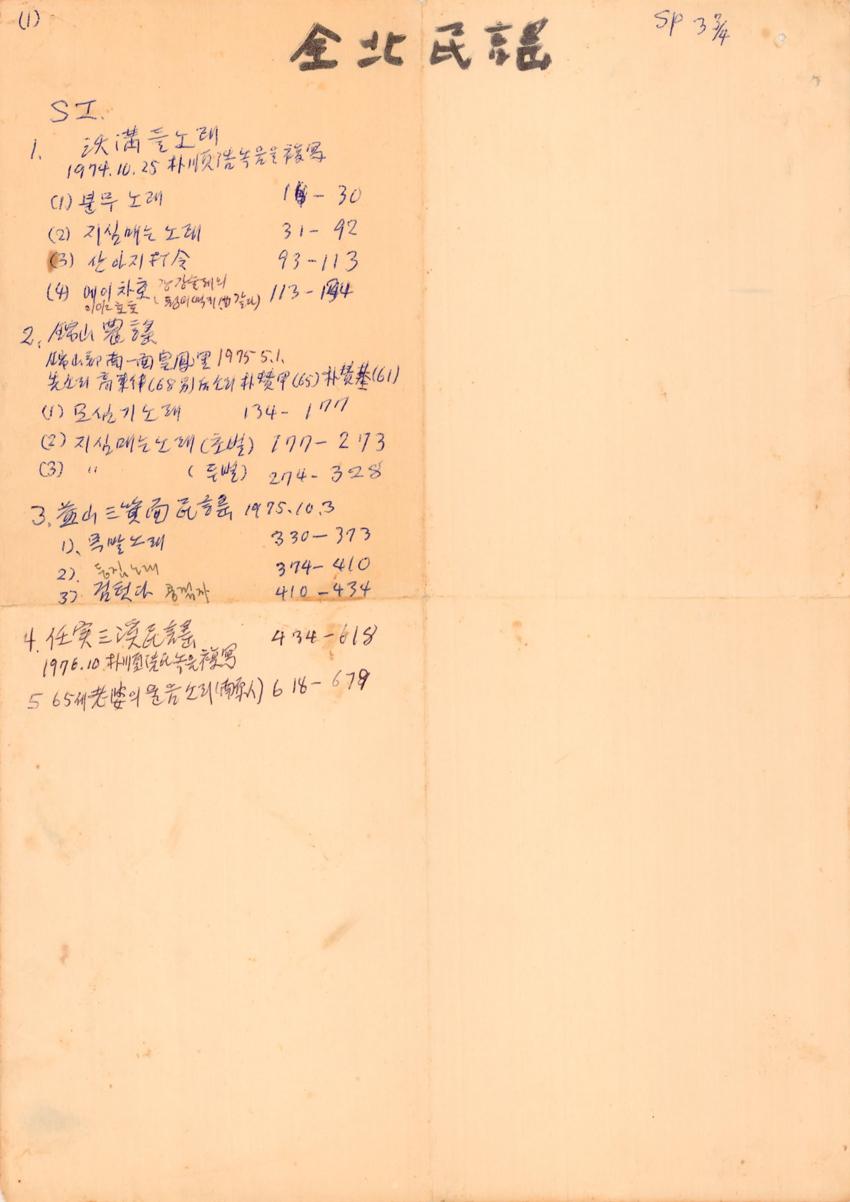 (1)
全北民謠
SP 3 3/4
SI.
1. 沃溝들노래
1974.10.25 朴順浩녹음을複寫
(1) 불무노래 1 - 30
(2) 지심매는노래 31 - 92
(3) 산아지打令 93 - 113
(4) 에이차호 강강술래의 113 - 134
2. 錦山農謠
錦山郡南一面皇鳳里 1975 5.1.
先소리 (68 男) 后소리 朴贊甲(65) 朴贊基(61)
(1) 모심기노래 134 - 177
(2) 지심매는노래 (초벌) 177 - 273
(3) 〃 (두벌) 274 - 328
3. 益山三箕面民謠 1975.10.3
1). 목발노래 330 - 373
2). 등짐노래 374 - 410
3) 콩꺾자 410 - 434
4. 任實三溪民謠 434 - 618
1976.10 朴順浩氏녹음複寫
5 65세老婆의울음소리(南原人) 618 - 679